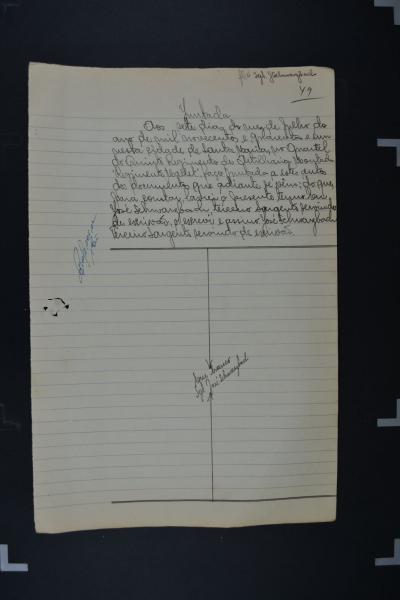 Sgt. Schwarzbach
49
Juntada
Aos sete dias do mez de Julho do
ano de mil novecentos e quarenta e um
nesta cidade de Santa Maria, no Quartel
do Quinto Regimento de Artilharia Montada
"Regimento Mallet", faço juntada a estes autos
do documento que adiante se vê; do que,
para constar, lavrei o presente termo. Eu,
José Schwarzbach, terceiro sargento servindo
de escrivão, o escrevi e assino. José Schwarzbach
Terceiro Sargento servindo de escrivão.
Sgt. José Schwarzbach